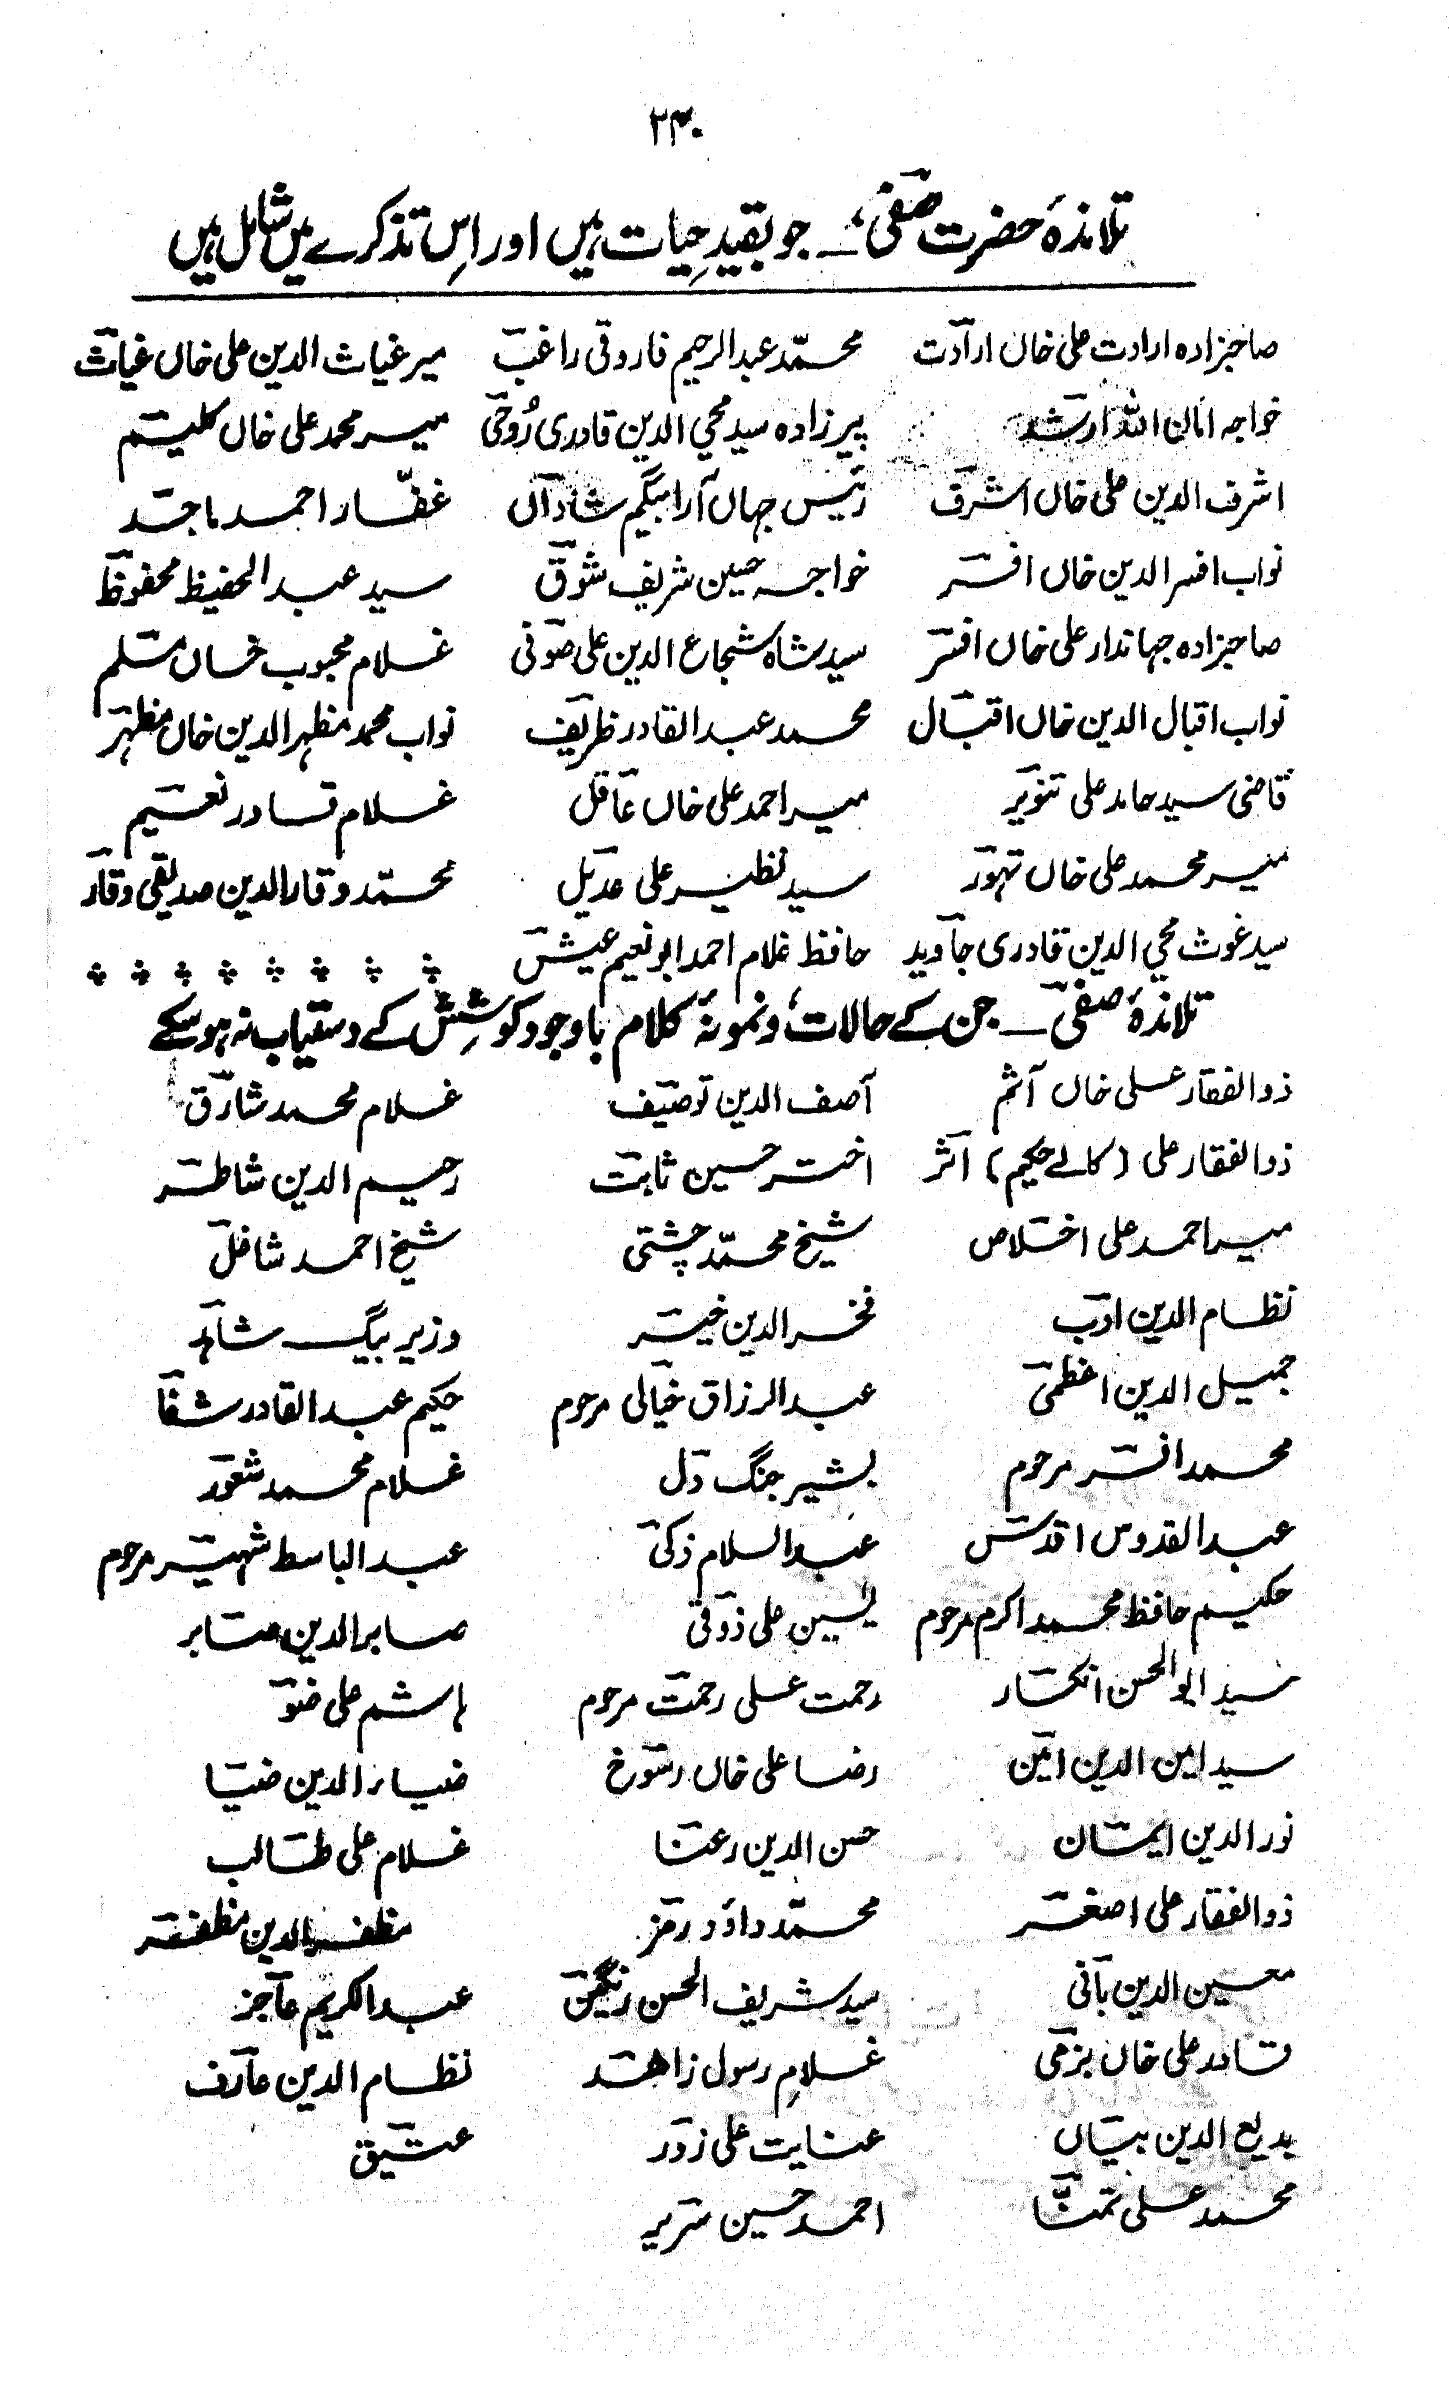 ۲۴۰
تلامذۂ حضرت صفیؔ — جو بقیدِ حیات ہیں اور اِس تذکرے میں شامل ہیں
صاحبزادہ ارادت علی خاں ارادتؔ محمّد عبدالرحیم فاروقی راغبؔ میر غیاث الدین علی خاں غیاثؔ
خواجہ امان اللہ ارشدؔ پیرزادہ سید محی الدین قادری رُوحیؔ میر محمد علی خاں کلیمؔ
اشرف الدین علی خاں اشرفؔ رئیس جہاں آرا بیگم شاداںؔ غفّار احمد ماجدؔ
نواب افسر الدین خاں افسرؔ خواجہ حسین شریف شوقؔ سید عبدالحفیظ محفوظؔ
صاحبزادہ جہاندار علی خاں افسرؔ سید شاہ شجاع الدین علی صوفیؔ غلام محبوب خاں مسلمؔ
نواب اقبال الدین خاں اقبالؔ محمد عبدالقادر ظریفؔ نواب محمد مظہر الدین خاں مظہرؔ
قاضی سید حامد علی تنویرؔ میر احمد علی خاں عاقلؔ غلام قادر نعیمؔ
میر محمد علی خاں تہورؔ سید نظیر علی عدیلؔ محمّد وقار الدین صدیقی وقارؔ
سید غوث محی الدین قادری جاویدؔ حافظ غلام احمد ابو نعیم عیشؔ
تلامذۂ صفیؔ — جن کے حالات و نمونۂ کلام باوجود کوشِش کے دستیاب نہ ہو سکے
ذوالفقار علی خاں آثمؔ آصف الدین توصیفؔ غلام محمد شارقؔ
ذوالفقار علی (کالے حکیم) اثرؔ اختر حسین ثابتؔ رحیم الدین شاطرؔ
میر احمد علی اخلاصؔ شیخ محمّد چشتیؔ شیخ احمد شاغلؔ
نظام الدین ادبؔ فخر الدین خیرؔ وزیر بیگ شاہؔ
جمیل الدین اعظمیؔ عبدالرزاق خیالیؔ مرحوم حکیم عبدالقادر شفاؔ
محمد افسرؔ مرحوم بشیر جنگ دلؔ غلام محمد شعورؔ
عبدالقدوس اقدسؔ عبدالسلام ذکیؔ عبدالباسط شہیرؔ مرحوم
حکیم حافظ محمد اکرم مرحوم یٰسین علی ذوقیؔ صابر الدین صابرؔ
سید ابوالحسن انکسارؔ رحمت علی رحمتؔ مرحوم ہاشم علی ضوؔ
سید امین الدین امینؔ رضا علی خاں رسوخؔ ضیاء الدین ضیاؔ
نور الدین ایمانؔ حسن الدین رعناؔ غلام علی طالبؔ
ذوالفقار علی اصغرؔ محمّد داؤد رمزؔ مظفر الدین مظفرؔ
معین الدین بانیؔ سید شریف الحسن رنگینؔ عبدالکریم عاجزؔ
قادر علی خاں بزمیؔ غلام رسول زاہدؔ نظام الدین عارفؔ
بدیع الدین بیاںؔ عنایت علی زورؔ عتیقؔ
محمد علی تمنّاؔ احمد حسین سریرؔ